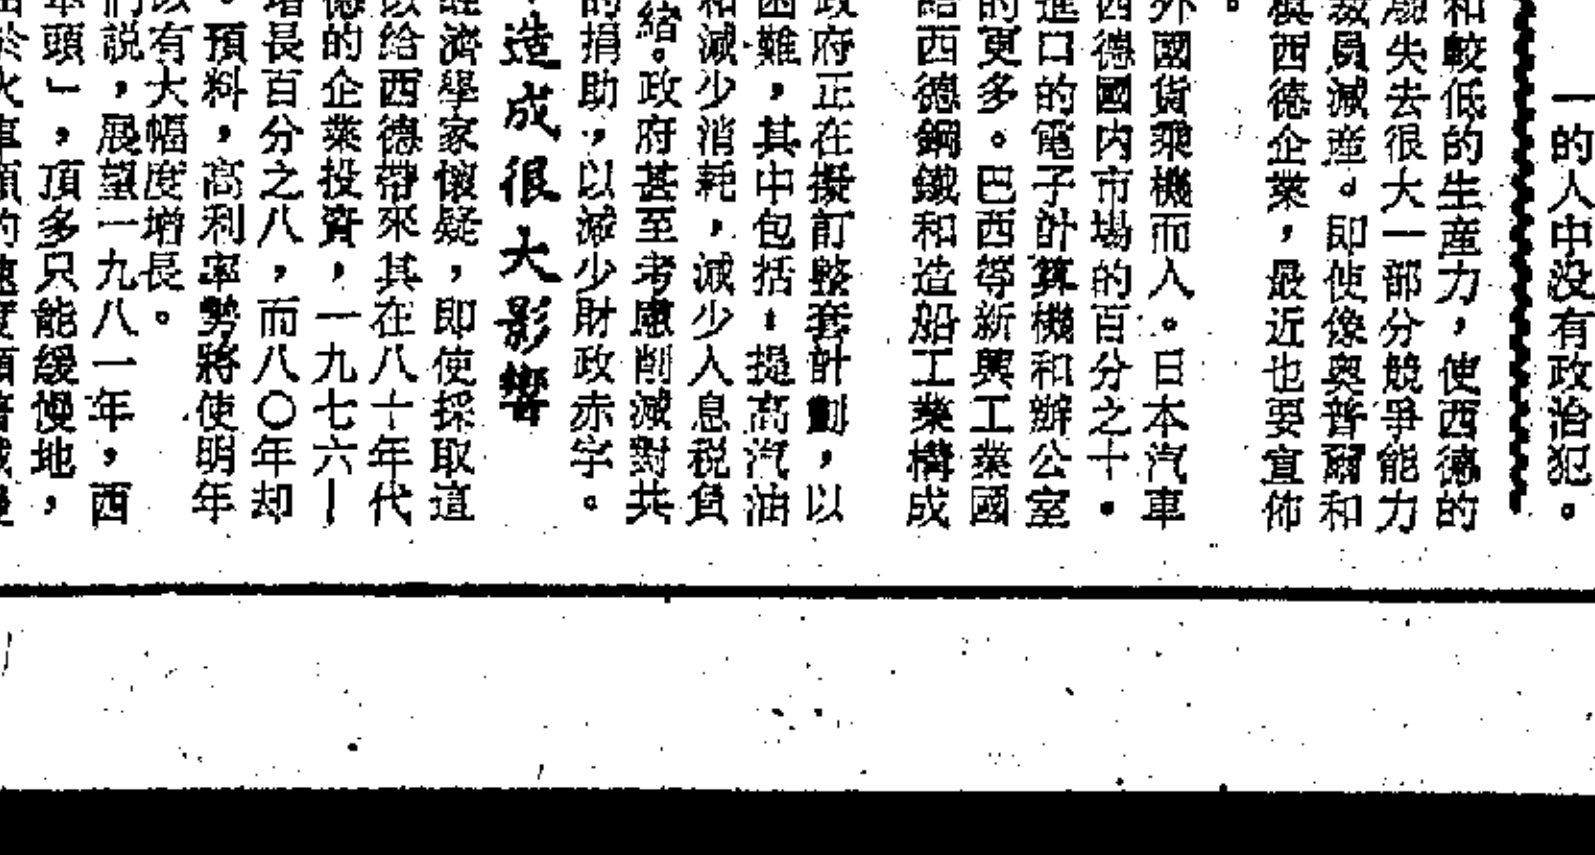 一的人中没有政治犯。
和較低的生産力，使西德的
失去很大一部分競爭能力
裁員減産。即使像奥普爾和
模西德企業，最近也要宣佈
。
外國貨乘機而入。日本汽車
西德國内市場的百分之十。
進口的電子計算機和辦公室
的更多。巴西等新興工業國
給西德鋼鐵和造船工業構成
政府正在擬訂整套計劃，以
困難，其中包括：提高汽油
和減少消耗，減少入息税負
縮。政府甚至考慮削減對共
的捐助，以減少財政赤字。
造成很大影響
經濟學家懷疑，即使採取這
以給西德帶來其在八十年代
德的企業投資，一九七六—
增長百分之八，而八〇年却
。預料，高利率勢將使明年
以有大幅度增長。
們説，展望一九八一年，西
車頭」，頂多只能緩慢地，
由於火車頭的速度